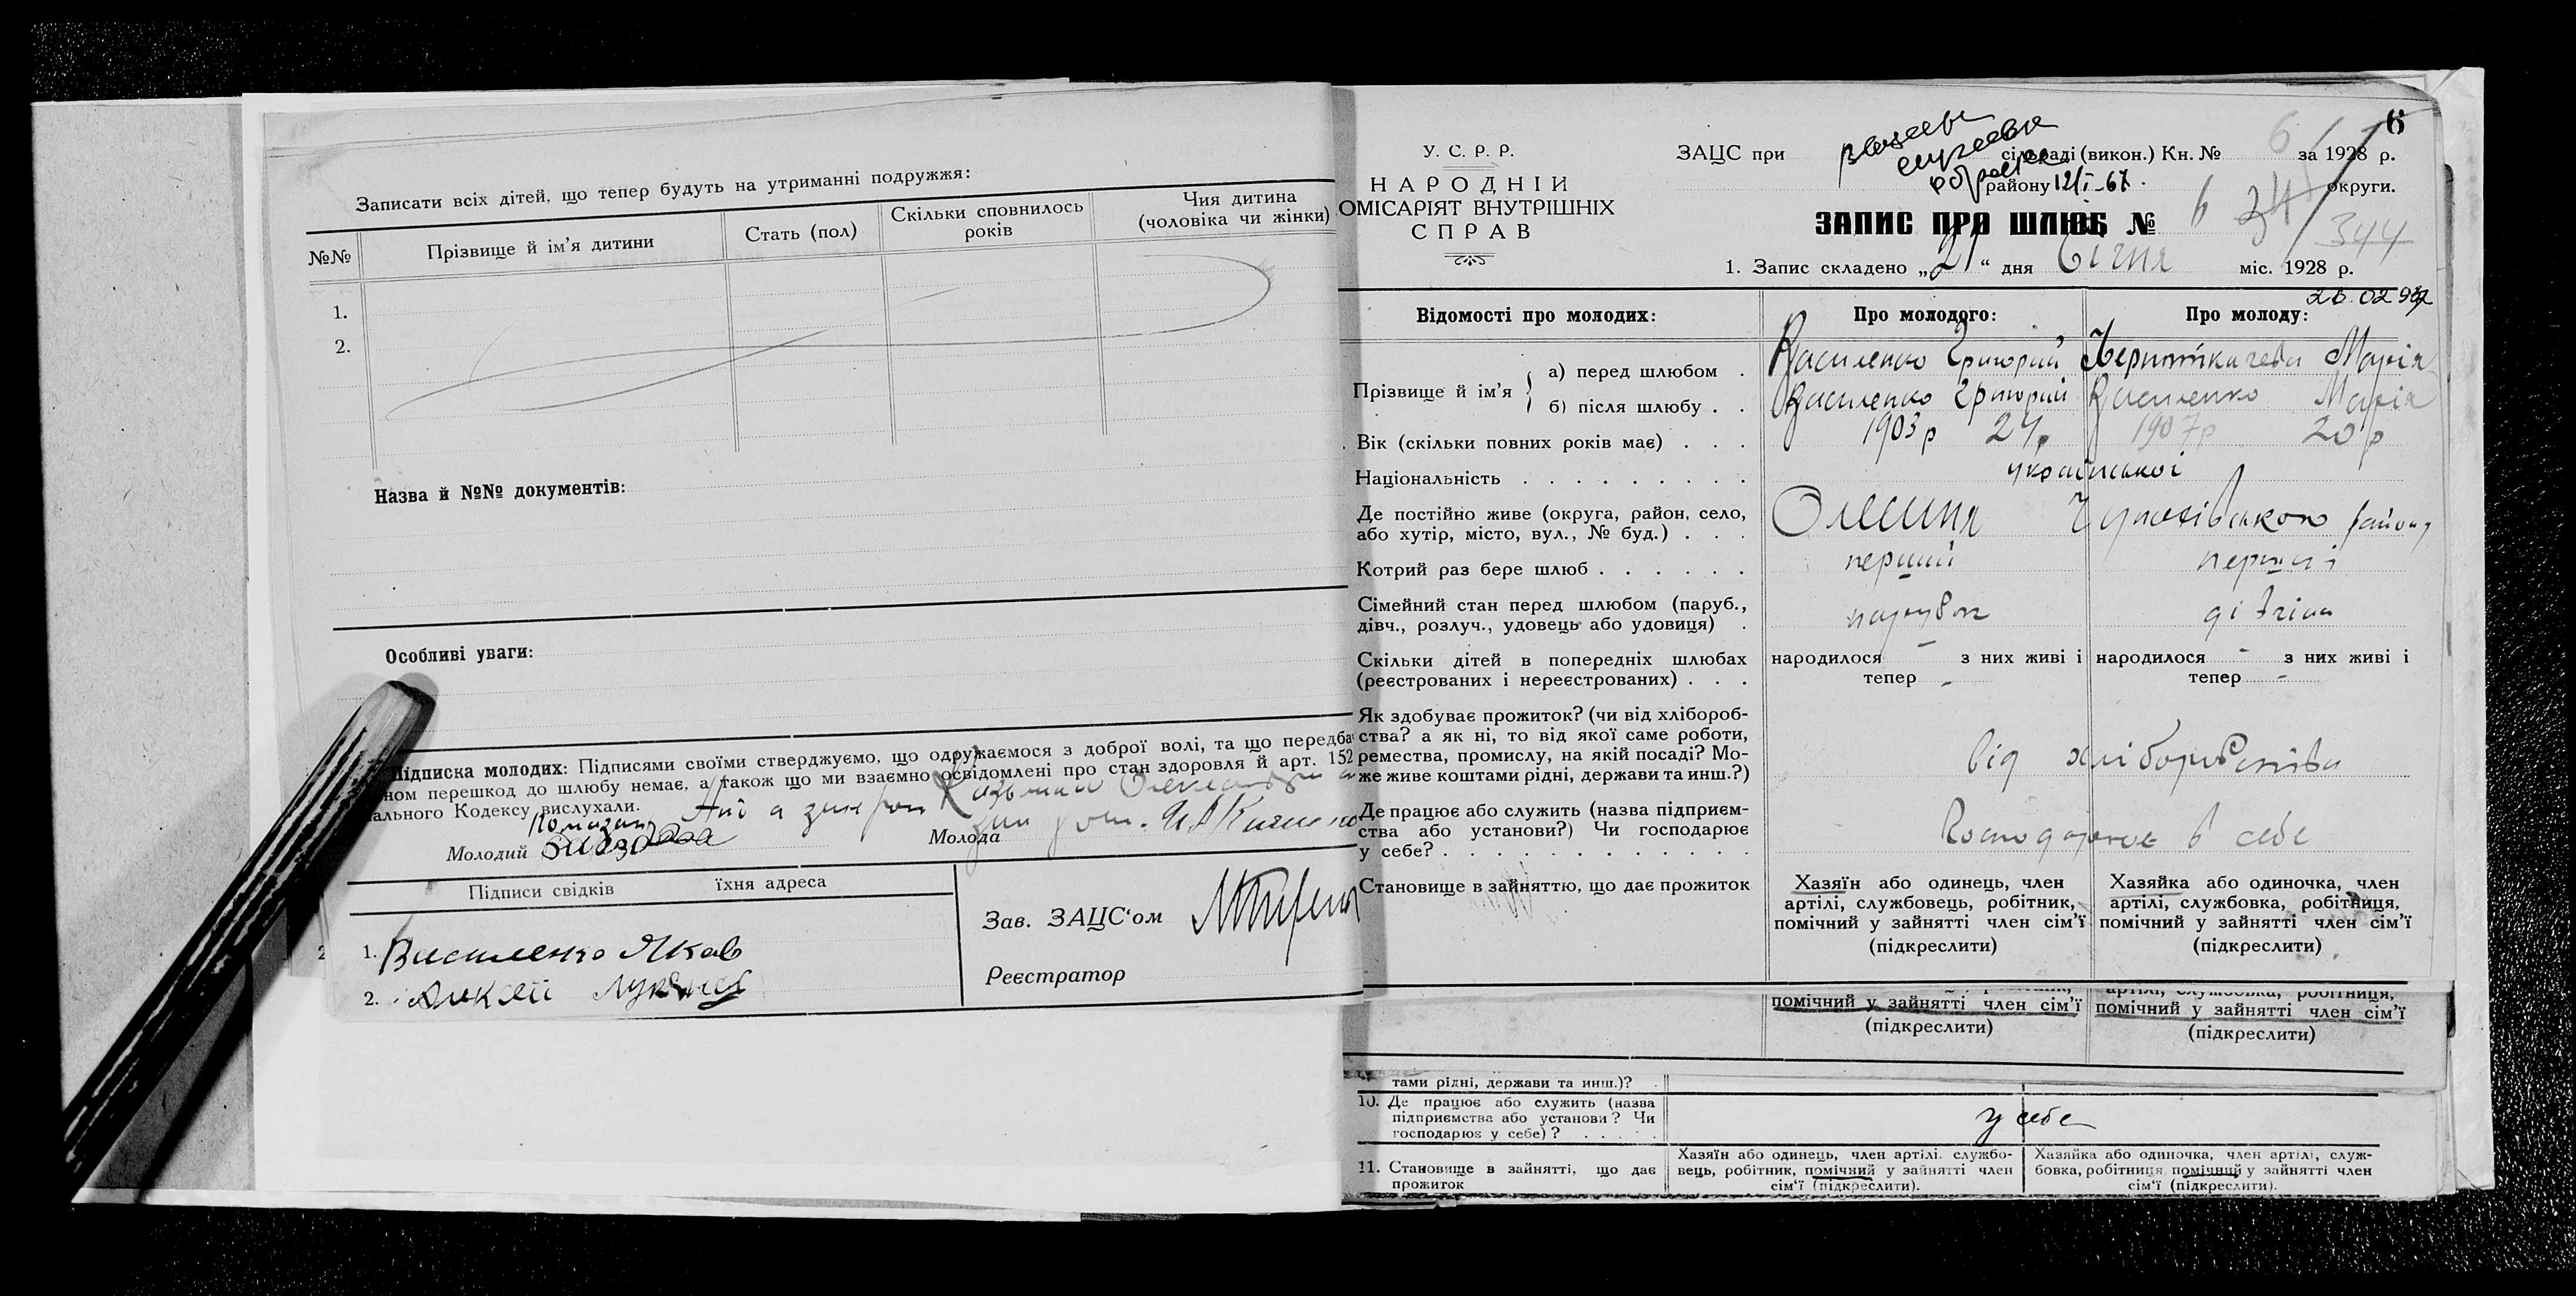 Записати всіх дітей, що тепер будуть на утриманні подружжя:
№№ Прізвище й ім'я дитини Стать (пол) Скільки сповнилось років Чия дитина (чоловіка чи жінки)
1.
2.
Назва й №№ документів:
Особливі уваги:
Підписка молодих: Підписями своїми стверджуємо, що одружаємося з доброї волі, та що передба
ном перешкод до шлюбу немає, а також що ми взаємно освідомлені про стан здоровля й арт. 152
ального Кодексу вислухали.
Молодий
Молода
Підписи свідків їхня адреса
1. Василенко Яков
2.
Зав. ЗАЦС'ом
Реєстратор
6
У. С. Р. Р.
НАРОДНІЙ
ОМІСАРІЯТ ВНУТРІШНІХ
СПРАВ
ЗАЦС при сільраді (викон.) Кн. № 6 за 1928 р.
району 12/I-67. округи.
ЗАПИС ПРО ШЛЮБ № 6 34
344
1. Запис складено „21“ дня Січня міс. 1928 р.
Відомості про молодих: Про молодого: Про молоду:
Прізвище й ім'я
а) перед шлюбом . Василенко Григорий Марія
б) після шлюбу . . Василенко Григорий Василенко Марія
Вік (скільки повних років має) . . . 1903р 24р 1907р 20р
Національність . . . . . . . . . української
Де постійно живе (округа, район, село,
або хутір, місто, вул., № буд.) . . . району
Котрий раз бере шлюб . . . . . . перший перший
Сімейний стан перед шлюбом (паруб.,
дівч., розлуч., удовець або удовиця) . парубок дівчина
Скільки дітей в попередніх шлюбах народилося - з них живі і народилося - з них живі і
(реєстрованих і нереєстрованих) . . . тепер - тепер -
Як здобуває прожиток? (чи від хлібороб-
ства? а як ні, то від якої саме роботи,
ремества, промислу, на якій посаді? Мо-
же живе коштами рідні, держави та инш.?) від хліборобства
Де працює або служить (назва підприєм-
ства або установи?) Чи господарює
у себе? . . . . . . . . . . . . Господарює в себе
Становище в зайняттю, що дає прожиток
Хазяїн або одинець, член
артілі, службовець, робітник,
помічний у зайнятті член сім'ї
(підкреслити)
Хазяйка або одиночка, член
артілі, службовка, робітниця,
помічний у зайнятті член сім'ї
(підкреслити)
помічний у зайнятті член сім'ї
(підкреслити)
артілі, службовка, робітниця,
помічний у зайнятті член сім'ї
(підкреслити)
тами рідні, держави та инш.)?
10. Де працює або служить (назва
підприємства або установи? Чи
господарює у себе)? . . . . . у себе
11. Становище в зайнятті, що дає
прожиток
Хазяїн або одинець, член артілі, службо-
вець, робітник, помічний у зайнятті член
сім'ї (підкреслити).
Хазяйка або одиночка, член артілі, служ-
бовка, робітниця, помічний у зайнятті член
сім'ї (підкреслити).